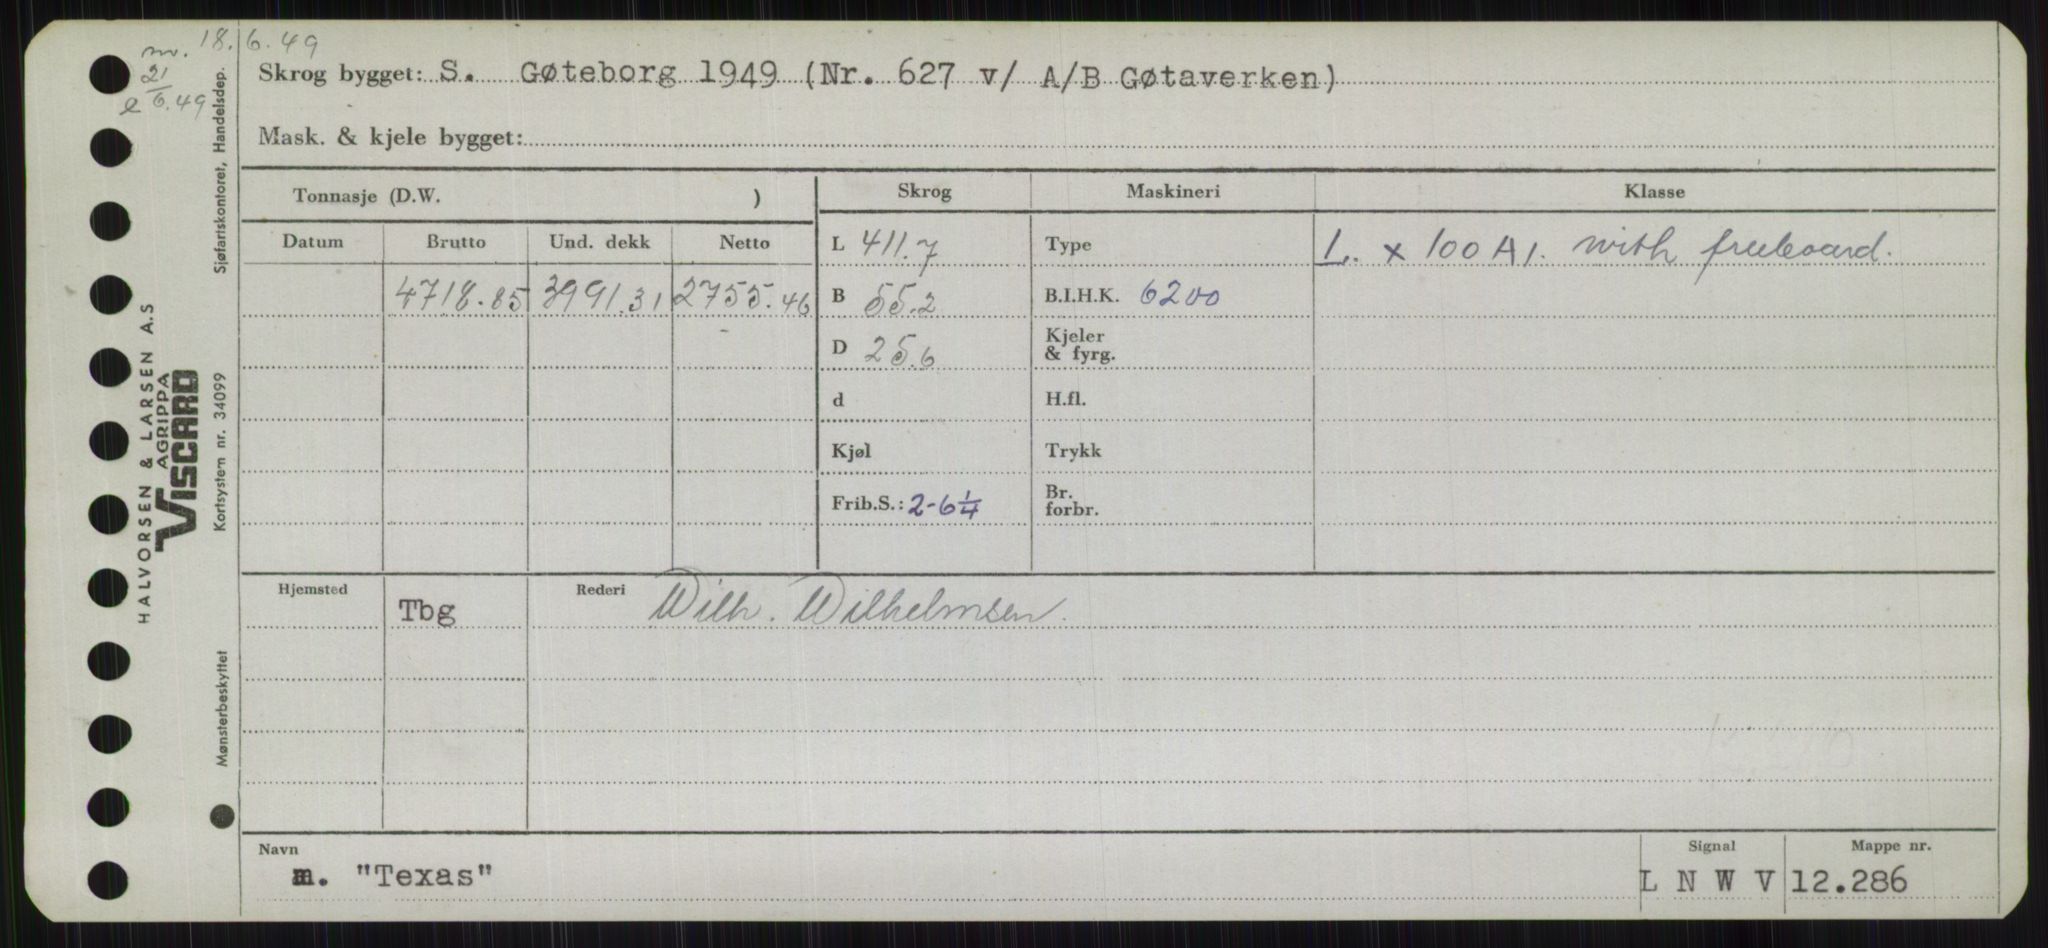 m. 18.6.49
21/6.49
Skrog bygget: S. Gøteborg 1949 (Nr. 627 v/ A/B Gøtaverken)
Mask. & kjele bygget:
Tonnasje (D.W. )
Skrog
Maskineri
Klasse
Datum Brutto Und. dekk Netto
L 411.7
Type
L. x 100 A 1. with freeboard.
4718.85 3991.31 2755.46
B 55.2
B.I.H.K. 6200
D 25.6
Kjeler
& fyrg.
d
H.fl.
Kjøl
Trykk
Frib.S.: 2-6 1/4
Br.
forbr.
Hjemsted Tbg
Rederi Wilh. Wilhelmsen.
Navn
m. "Texas"
Signal
L N W V
Mappe nr.
12.286
Sjøfartskontoret, Handelsdep.
HALVORSEN & LARSEN A.S
AGRIPPA
VISCARD
Kortsystem nr. 34099
Mønsterbeskyttet